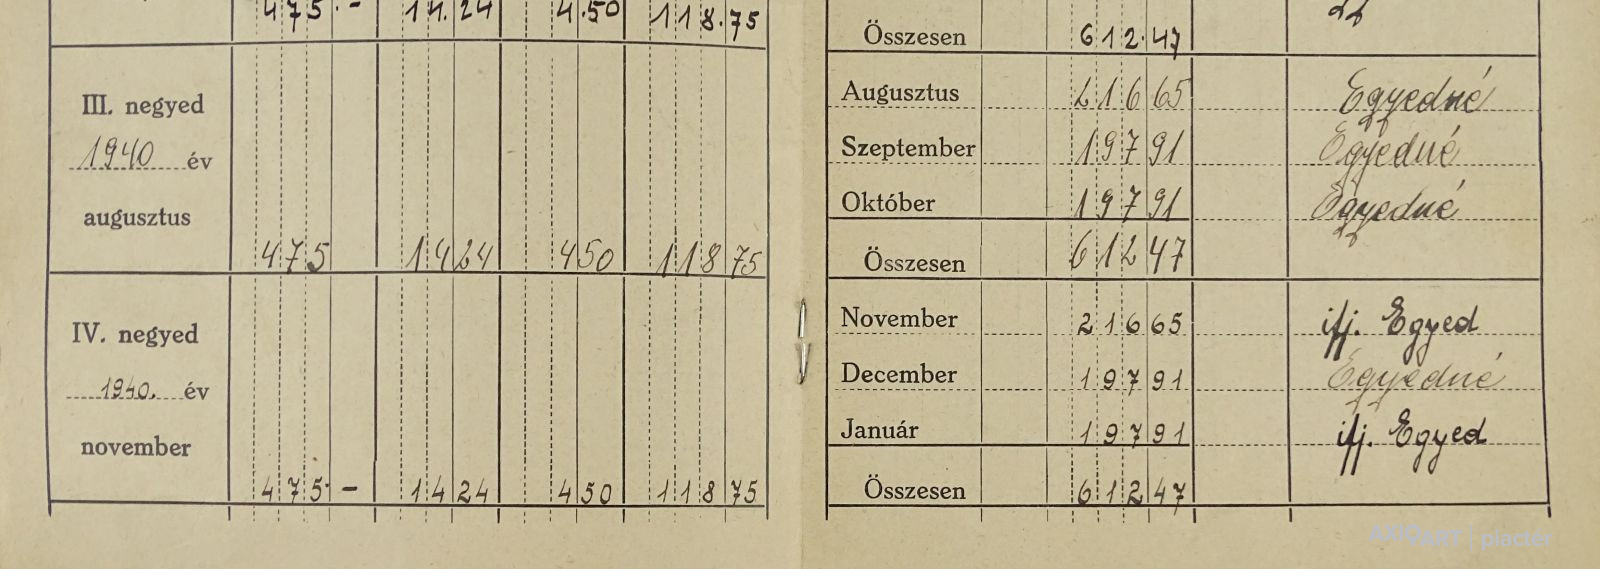 475.- 14.24 4.50 118.75
III. negyed
1940 év
augusztus
475 14 24 4 50 118 75
IV. negyed
1940. év
november
475 - 14 24 4 50 118 75
Összesen 612.47
Augusztus 216 65 Egyedné
Szeptember 197 91 Egyedné
Október 197 91 Egyedné
Összesen 612 47
November 216 65 ifj. Egyed
December 197 91 Egyedné
Január 197 91 ifj. Egyed
Összesen 612 47
AXIOART | piactér